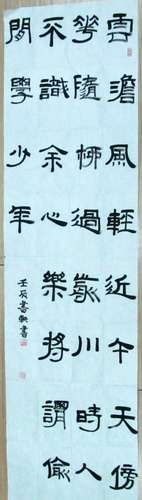 雲澹風輕近午天傍
花隨桺過歬川時人
不識余心樂將謂偷
閒學少年
壬辰